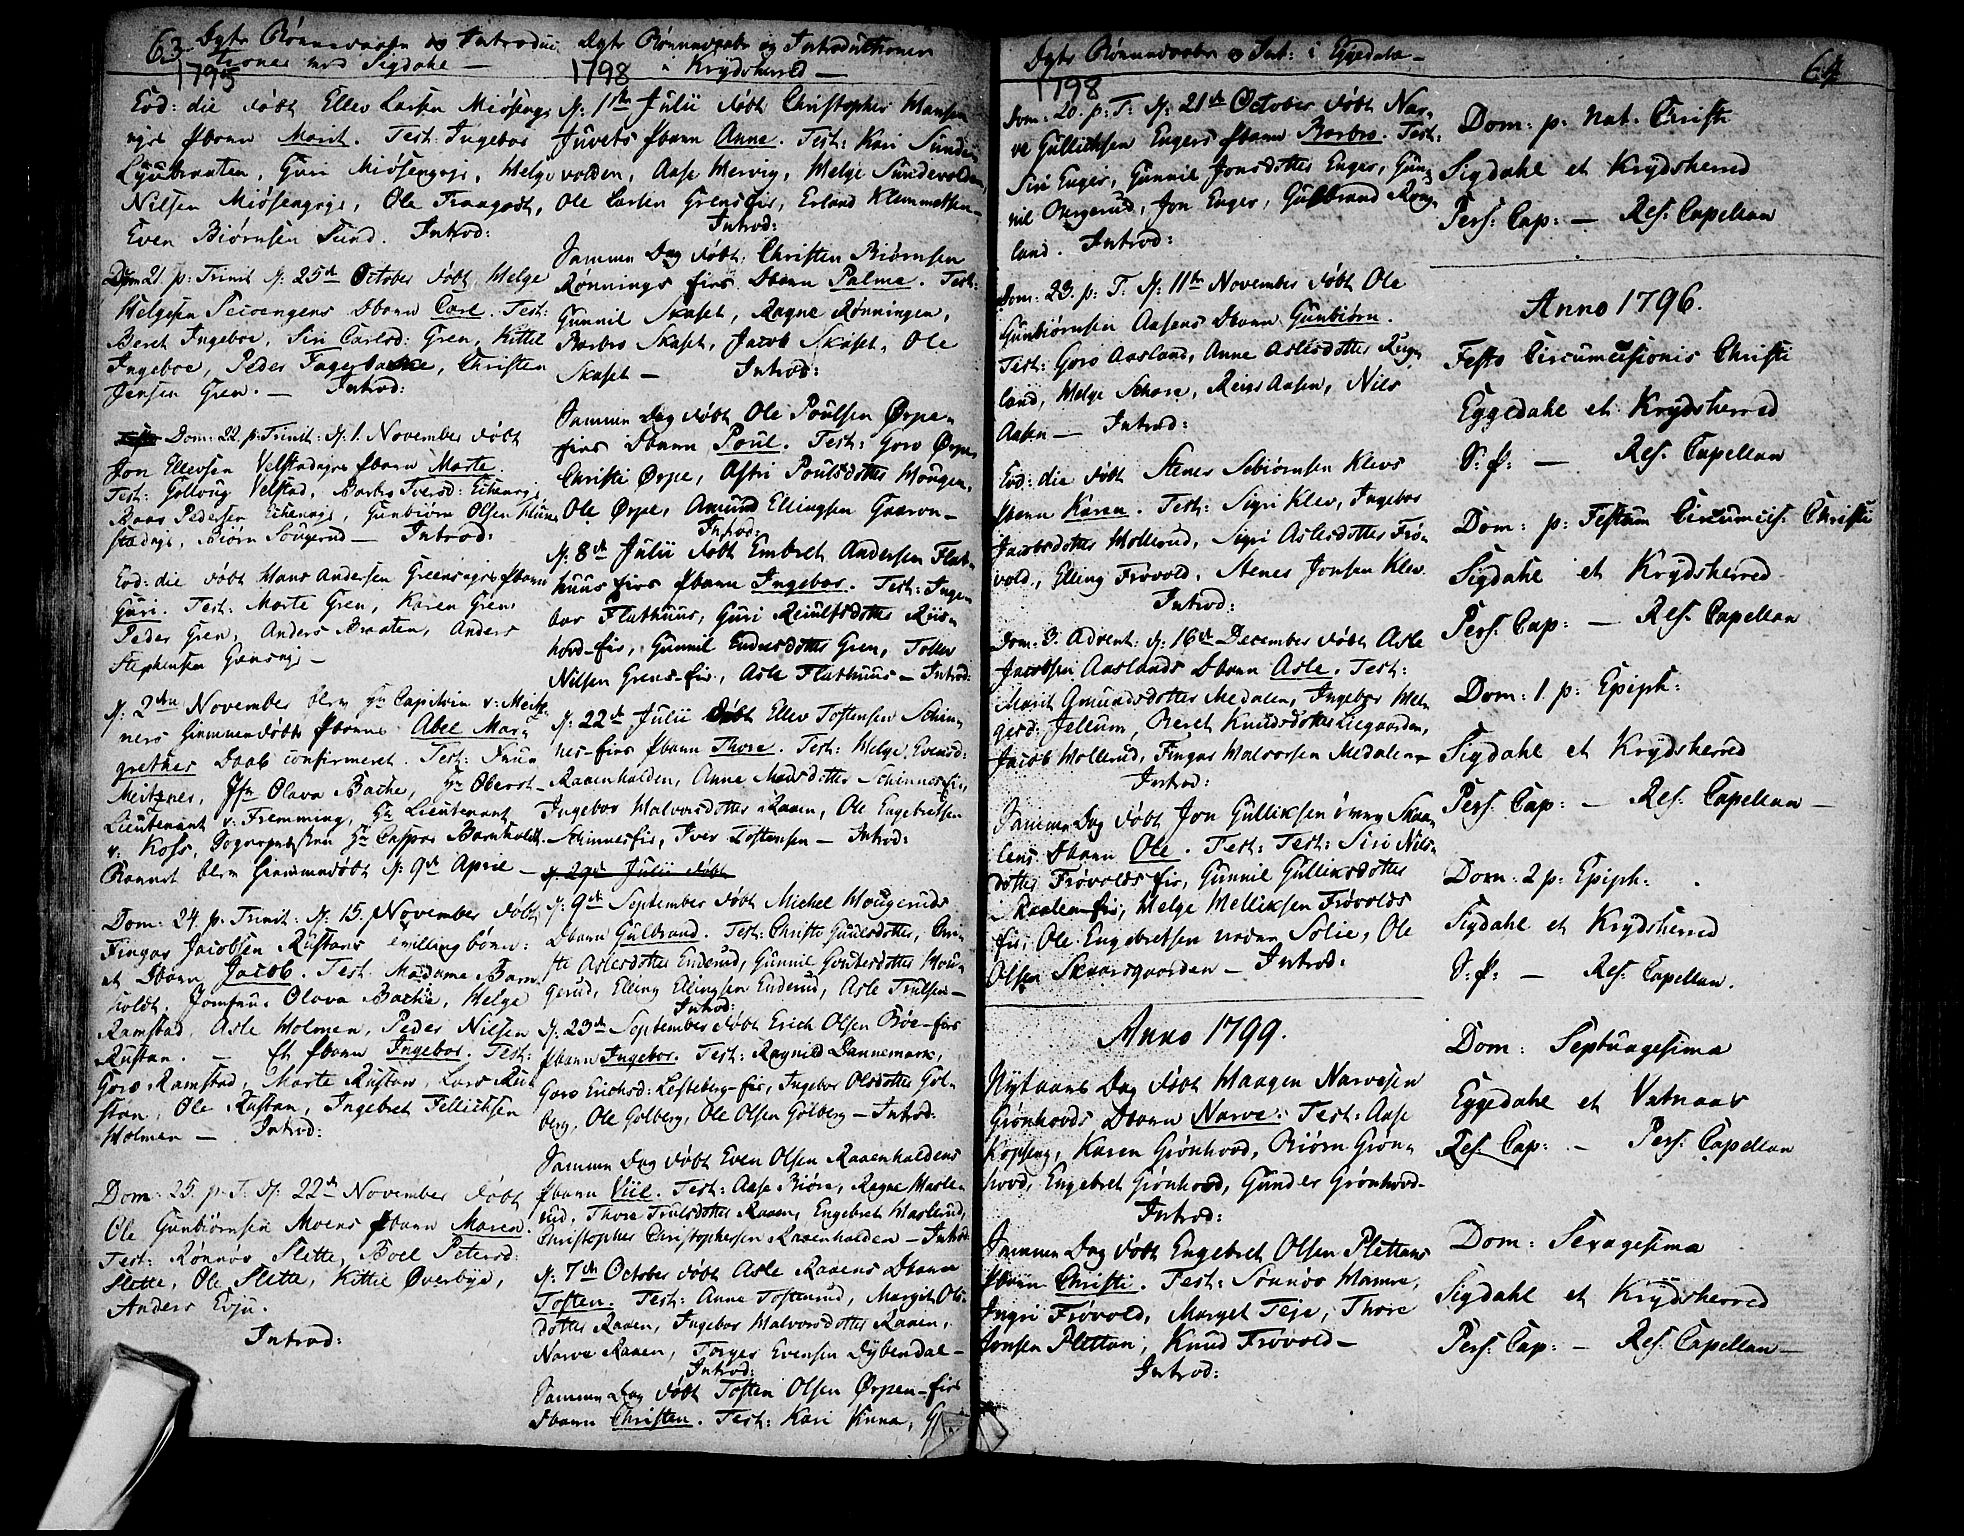 63. Ægte Børnedaabe og Introduc
tioner ved Sigdahl —
1795
Eod: die døbt Ellev Larsen Miøsengs
eje Pbarn Marit. Test: Ingebor
Lyübraaten, Guri Miøsengeje, Helge
Nilsen Miøsengeje, Ole Fraagodt,
Even Biørnsen Lund. Introd:
Dom: 21. p: Trinit d: 25de October døbt Helge
Helgesen Dbarn Carl. Test:
Beret Ingeboe, Siri Carlsd: Gren, Kittil
Ingeboe, Peder Fagerbakke, Christen
Jensen Gren. — Introd:
Dom: 22. p: Trinit: d: 1. November døbt
Jon Ellevsen Velstadeje Pbarn Marte.
Test: Gollaug Velstad, Barbro Iversd: Eikeneje,
Pedersen Eikeneje, Gunbiørn Olsen
Biørn Sougerud — Introd:
Eod: die døbt Hans Andersen Greenseje Pbarn
Guri. Test: Marte Gren, Karen Gren,
Peder Gren, Anders Braaten, Anders
Stephensen Grenseje —
d: 2den November blev Hr Capitain v: Meitz-
ners hiemmedøbte Pbarns Abel Mar-
grethes Daab confirmeret. Test: Frue
Meitzner, Jfr Olava Bache, Hr Oberst-
Lieutenant v: Fremming, Hr Lieutenant
v. Koss, Sognepræsten Hr Caspar Barnholdt.
Barnet blev hiemmedøbt d: 9de April —
Dom: 24. p. Trinit: d: 15. November døbt
Fingar Jacobsen Rustans tvillingbørn:
et Dbarn Jacob. Test. Madame Barn-
holdt, Jomfrue Olava Bache, Helge
Ramstad, Asle Holmen, Peder Nilsen
Rustan. — Et Pbarn Ingebor. Test:
Goro Ramstad, Marte Rustan, Lars Ru-
stan, Ole Rustan, Ingebret Tellichsen
Holmen — Introd:
Dom: 25. p. T. d: 22de November døbt
Ole Gunbiørnsen Moens Pbarn Maren.
Test: Rønnov Slette, Boel Petersd:
Slette, Ole Slette, Kittil Øverbye,
Anders Evju.
Introd:
Ægte Børnedaabe og Introductioner
1798 i Krydsherred —
d: 1ste Julii døbt Christopher Hansen
Juvets Pbarn Anne. Test: Kari Sunde-
volden, Aase Hervig, Helge Sundevolden,
Ole Larsen Grenseje, Erland Klemmetsen —
Introd:
Samme Dag døbt: Christen Biørnsen
Rønnings-eje Dbarn Palme. Test:
Gunnil Skaset, Ragne Rønningen,
Barbro Skaset, Jacob Skaset, Ole
Skaset — Introd:
Samme Dag døbt Ole Poulsen Ørpe-
eje Dbarn Poul. Test: Goro Ørpe,
Christi Ørpe, Astri Poulsdotter Hougen,
Ole Ørpe, Amund Ellingsen Gaaren —
Introd:
d: 8de Julii døbt Embret Andersen Flat-
huus-eje Pbarn Ingebor. Test: Inge-
bor Flathuus, Guri Reiulfsdotter Riis-
hovd-eje, Gunnil Endresdotter Gren, Tollev
Nilsen Grens-eje, Asle Flathuus — Introd:
d: 22de Julii døbt Ellev Tostensen Skin-
nes-eje Pbarn Thore. Test: Helge Evensd:
Raaenhalden, Anne Madsdotter Schinnes-eje,
Ingebor Halvorsdotter Raaen, Ole Engebretsen
Skinnes-eje, Iver Tostensen — Introd:
d: 29de Julii døbt
d: 9de September døbt Michel Hougeruds
Dbarn Gulbrand. Test: Christi Guulsdotter, Chri-
sti Aslesdotter Enderud, Gunnil Gontesdotter Hou-
gerud, Elling Ellingsen Enderud, Asle Trulsen —
Introd:
d: 23de September døbt Erich Olsen Bøe-eje
Pbarn Ingebor. Test: Ragnild Dannemark,
Goro Erichsd: Lesteberg-eje, Ingebor Olsdotter Gol-
berg, Ole Golberg, Ole Olsen Golberg — Introd:
Samme Dag døbt Even Olsen Raaenhaldens
Pbarn Viil. Test: Aase Biøre, Ragne Hasle-
rud, Thore Trulsdotter Raaen, Engebret Haslerud,
Christopher Christophersen Raaenhalden — Introd:
d: 7de October døbt Asle Raaens Dbarn
Tosten. Test: Anne Tostenrud, Margit Ols-
dotter Raaen, Ingebor Halvorsdotter Raaen,
Narve Raaen, Torger Evensen Dybendal —
Introd:
Samme Dag døbt Tosten Olsen Ørpen-eje
Dbarn Christen. Test: Kari Kinna, G
Ægte Børnedaabe og Int: i Eggedal —
1798
Dom: 20. p: T: d: 21de October døbt Nar-
ve Gullichsen Engers Pbarn Barbro. Test:
Siri Enger, Gunnil Jonsdotter Enger, Gun-
nil Bergerud, Jon Enger, Gulbrand Rog-
land. Introd:
Dom: 23. p: T. d: 11te November døbt Ole
Gunbiørnsen Aasens Dbarn Gunbiørn.
Test: Goro Aasland, Anne Aslesdotter Rug-
land, Helge Schare, Reier Aasen, Nils
Aasen — Introd:
Eod: die døbt Stener Sebiørnsen Klevs
Pbarn Karen. Test: Sigri Klev, Ingebor
Jacobsdotter Hollerud, Sigri Aslesdotter Frø-
vold, Elling Frøvold, Stener Jonsen Klev.
Introd:
Dom: 3. Advent: d: 16de December døbt Asle
Jacobsen Aaslands Dbarn Asle. Test:
Marit Amundsdotter Medalen, Ingebor Hel-
gesd: Jellum, Beret Knudsdotter Liegaarden,
Jacob Hollerud, Fingar Halvorsen Medalen —
Introd:
Samme Dag døbt Jon Gulliksen øvre Skaa-
lens Dbarn Ole. Test: Test: Siri Nils-
dotter Frøvolds eje, Gunnil Gulliksdotter
Skaalen-eje, Helge Melliksen Frøvolds
eje, Ole Engebretsen neden Solie, Ole
Olsen Skaarsgaarden — Introd:
Anno 1799.
Nytaars Dag døbt Haagen Narvesen
Grønhovds Dbarn Narve: Test: Aase
Kopseng, Karen Grønhovd, Biørn Grøn-
hovd, Engebret Grønhovd, Gunder Grønhovd —
Introd:
Samme Dag døbt Engebret Olsen Plettans
Pbarn Christi. Test: Sønnov Hamre,
Ingri Frøvold, Marget Teje, Thore
Jonsen Plettan, Knud Frøvold —
Introd:
64
Dom: p: Nat. Christi
Sigdahl et Krydsherred
Pers: Cap: — Res: Capellan
Anno 1796.
Festo Circumcisionis Christi
Eggedahl et Krydsherred
S: P: — Res. Capellan
Dom: p: Festum Circumcis: Christi
Sigdahl et Krydsherred
Pers. Cap: — Res. Capellan
Dom: 1. p: Epiph:
Sigdahl et Krydsherred
Pers. Cap: — Res. Capellan —
Dom: 2 p: Epiph:
Sigdahl et Krydsherred
S: P: — Res. Capellan.
Dom: Septuagesima
Eggedahl et Vatnaas
Res. Cap: — Pers: Capellan
Dom: Sexagesima
Sigdahl et Krydsherred
Pers. Cap: — Res. Capellan —